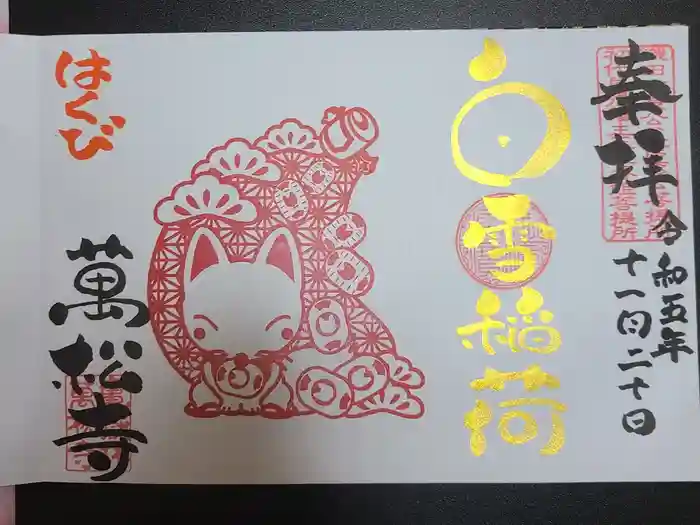 奉拝
令和五年
十一月二十日
白雪稲荷
はくび
萬松寺